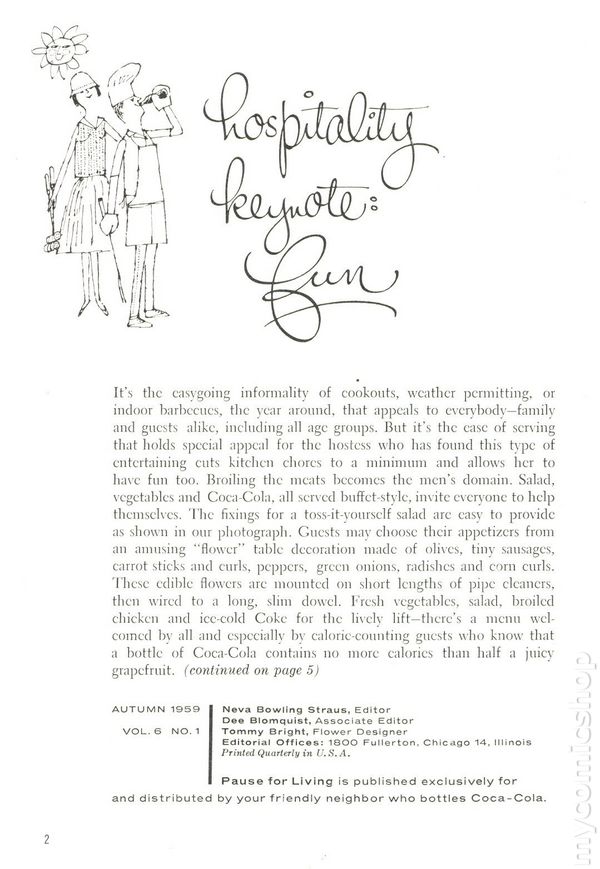 hospitality
keynote:
fun
It's the easygoing informality of cookouts, weather permitting, or
indoor barbecues, the year around, that appeals to everybody—family
and guests alike, including all age groups. But it's the ease of serving
that holds special appeal for the hostess who has found this type of
entertaining cuts kitchen chores to a minimum and allows her to
have fun too. Broiling the meats becomes the men's domain. Salad,
vegetables and Coca-Cola, all served buffet-style, invite everyone to help
themselves. The fixings for a toss-it-yourself salad are easy to provide
as shown in our photograph. Guests may choose their appetizers from
an amusing "flower" table decoration made of olives, tiny sausages,
carrot sticks and curls, peppers, green onions, radishes and corn curls.
These edible flowers are mounted on short lengths of pipe cleaners,
then wired to a long, slim dowel. Fresh vegetables, salad, broiled
chicken and ice-cold Coke for the lively lift—there's a menu wel-
comed by all and especially by calorie-counting guests who know that
a bottle of Coca-Cola contains no more calories than half a juicy
grapefruit. (continued on page 5)
AUTUMN 1959
VOL. 6 NO. 1
Neva Bowling Straus, Editor
Dee Blomquist, Associate Editor
Tommy Bright, Flower Designer
Editorial Offices: 1800 Fullerton, Chicago 14, Illinois
Printed Quarterly in U.S.A.
Pause for Living is published exclusively for
and distributed by your friendly neighbor who bottles Coca-Cola.
2
mycomicshop